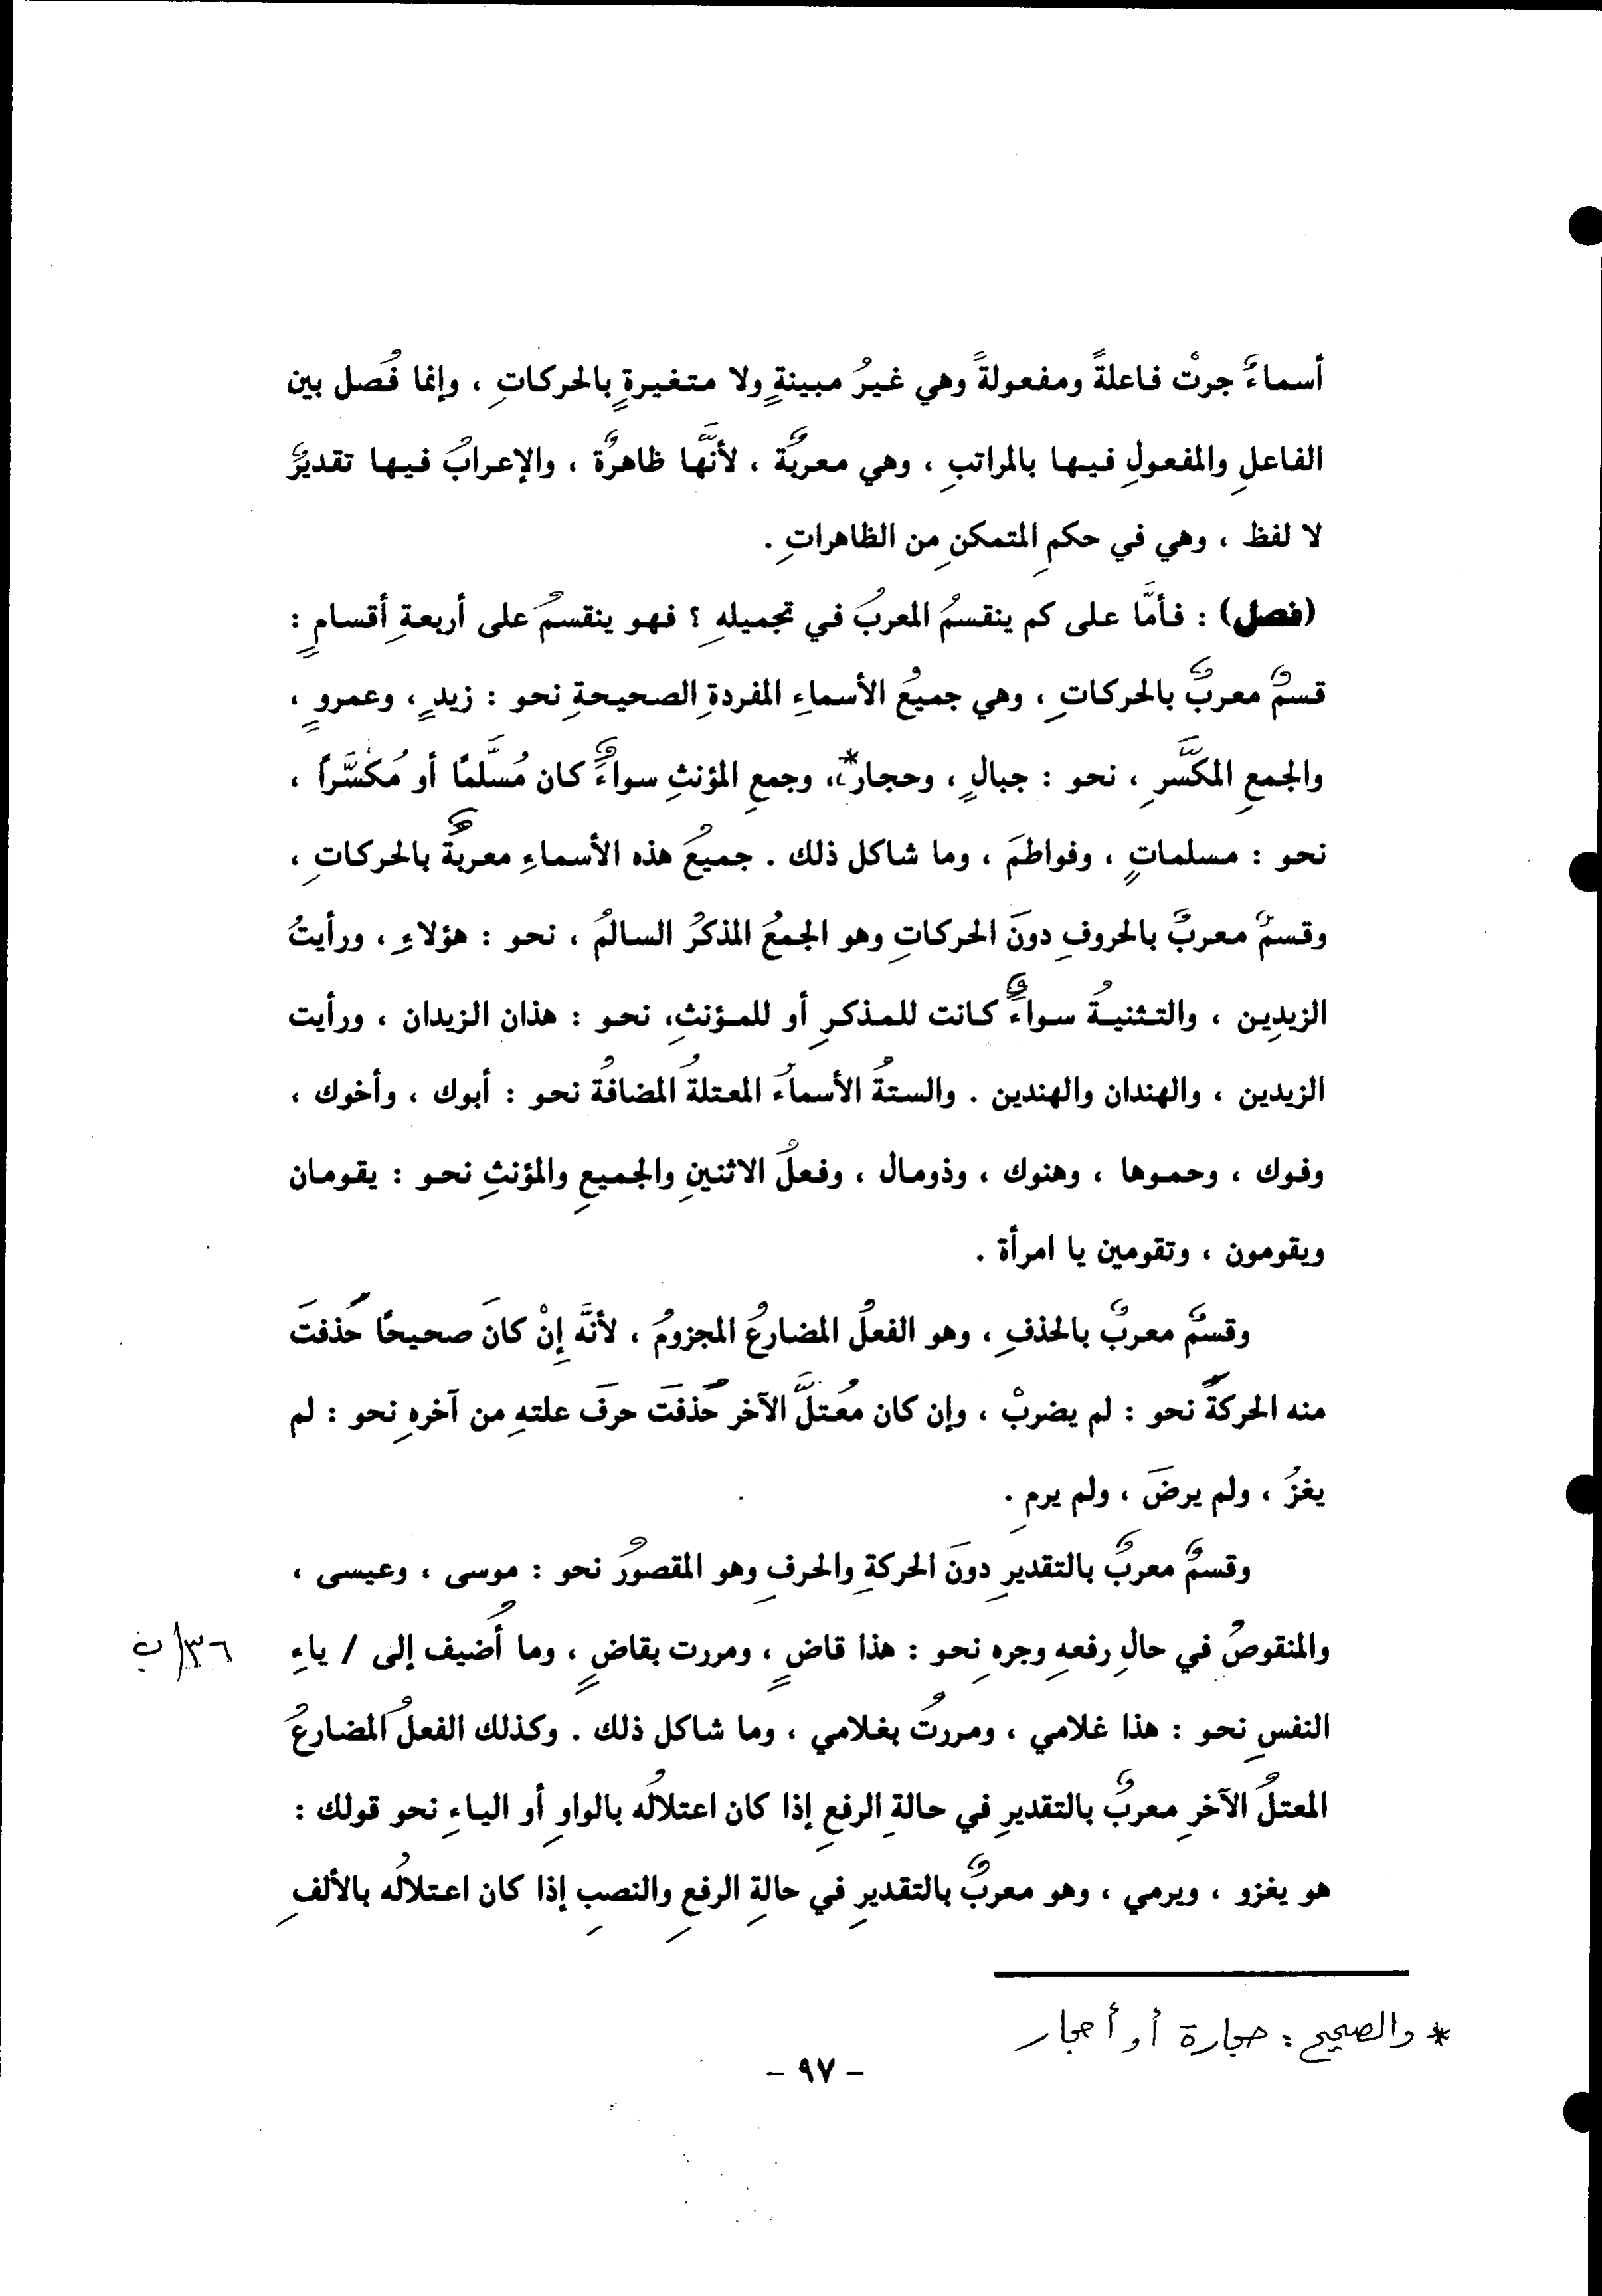 أسماءٌ جرتْ فاعلةً ومفعولةً وهي غيرُ مبينةٍ ولا متغيرةٍ بالحركاتِ ، وإنما فُصل بين
الفاعلِ والمفعولِ فيها بالمراتبِ ، وهي معربةٌ ، لأنَّها ظاهرةٌ ، والإعرابُ فيها تقديرٌ
لا لفظ ، وهي في حكمِ المتمكنِ من الظاهراتِ .
(فصل) : فأمَّا على كم ينقسمُ المعربُ في تجميلهِ ؟ فهو ينقسمُ على أربعةِ أقسامٍ :
قسمٌ معربٌ بالحركاتِ ، وهي جميعُ الأسماءِ المفردةِ الصحيحةِ نحو : زيدٍ ، وعمروٍ ،
والجمعِ المكسَّرِ ، نحو : جبالٍ ، وحجار* ، وجمعِ المؤنثِ سواءٌ كان مُسلَّمًا أو مُكسَّراً ،
نحو : مسلماتٍ ، وفواطمَ ، وما شاكل ذلك . جميعُ هذه الأسماءِ معربةٌ بالحركاتِ ،
وقسمٌ معربٌ بالحروفِ دونَ الحركاتِ وهو الجمعُ المذكرُ السالمُ ، نحو : هؤلاءِ ، ورأيتُ
الزيدِين ، والتثنيةُ سواءٌ كانت للمذكرِ أو للمؤنثِ، نحو : هذان الزيدان ، ورأيت
الزيدين ، والهندان والهندين . والستةُ الأسماءُ المعتلةُ المضافةُ نحو : أبوك ، وأخوك ،
وفوك ، وحموها ، وهنوك ، وذومال ، وفعلُ الاثنينِ والجميعِ والمؤنثِ نحو : يقومان
ويقومون ، وتقومين يا امرأة .
وقسمٌ معربٌ بالحذفِ ، وهو الفعلُ المضارعُ المجزومُ ، لأنَّه إنْ كانَ صحيحًا حَذفتَ
منه الحركةَ نحو : لم يضربْ ، وإن كان مُعتلَّ الآخر حَذفتَ حرفَ علتهِ من آخرهِ نحو : لم
يغزُ ، ولم يرضَ ، ولم يرمِ .
وقسمٌ معربٌ بالتقديرِ دونَ الحركةِ والحرفِ وهو المقصورُ نحو : موسى ، وعيسى ،
والمنقوصُ في حالِ رفعهِ وجرهِ نحو : هذا قاضٍ ، ومررت بقاضٍ ، وما أُضيف إلى / ياءِ ٣٦/ب
النفسِ نحو : هذا غلامي ، ومررتُ بغلامي ، وما شاكل ذلك . وكذلك الفعلُ المضارعُ
المعتلُ الآخرِ معربٌ بالتقديرِ في حالةِ الرفعِ إذا كان اعتلالُه بالواوِ أو الياءِ نحو قولك :
هو يغزو ، ويرمي ، وهو معربٌ بالتقديرِ في حالةِ الرفعِ والنصبِ إذا كان اعتلالُه بالألفِ
* والصحيح : حجارة أو أحجار
- ٩٧ -